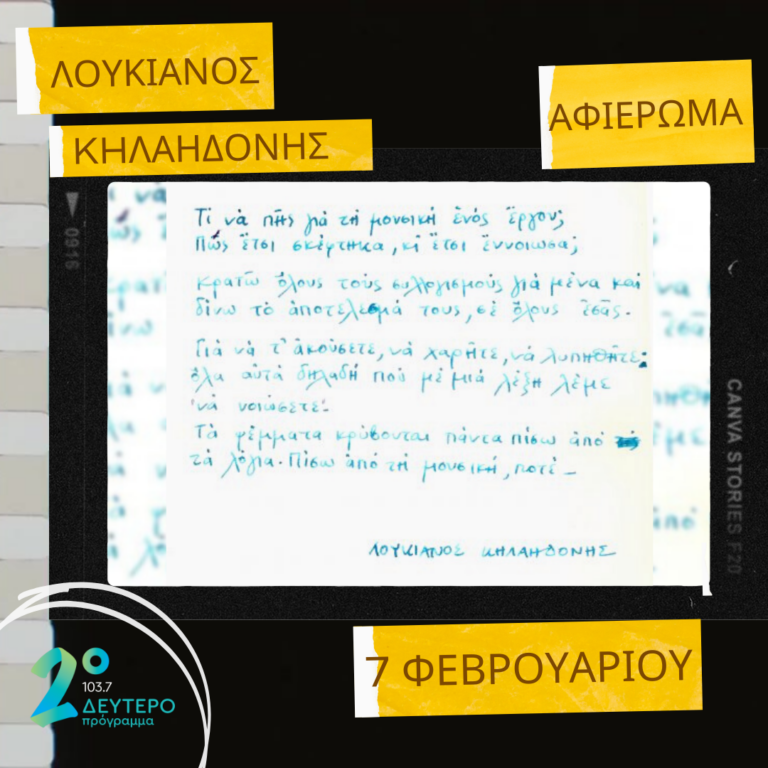 ΛΟΥΚΙΑΝΟΣ
ΚΗΛΑΗΔΟΝΗΣ
ΑΦΙΕΡΩΜΑ
0916
Τί νὰ πῇς γιὰ τὴ μουσικὴ ἑνὸς ἔργου;
Πῶς ἔτσι σκέφτηκα, κι ἔτσι ἔννοιωσα;
Κρατῶ ὅλους τοὺς συλλογισμοὺς γιὰ μένα καὶ
δίνω τὸ ἀποτέλεσμά τους, σὲ ὅλους ἐσᾶς.
Γιὰ νὰ τ' ἀκούσετε, νὰ χαρῆτε, νὰ λυπηθῆτε;
ὅλα αὐτὰ δηλαδὴ ποὺ μὲ μιὰ λέξη λέμε
νὰ νοιώσετε.
Τὰ ψέμματα κρύβονται πάντα πίσω ἀπὸ
τὰ λόγια. Πίσω ἀπὸ τὴ μουσική, ποτὲ —
ΛΟΥΚΙΑΝΟΣ ΚΗΛΑΗΔΟΝΗΣ
CANVA STORIES F20
7 ΦΕΒΡΟΥΑΡΙΟΥ
2ο
103.7
ΔΕΥΤΕΡΟ
πρόγραμμα